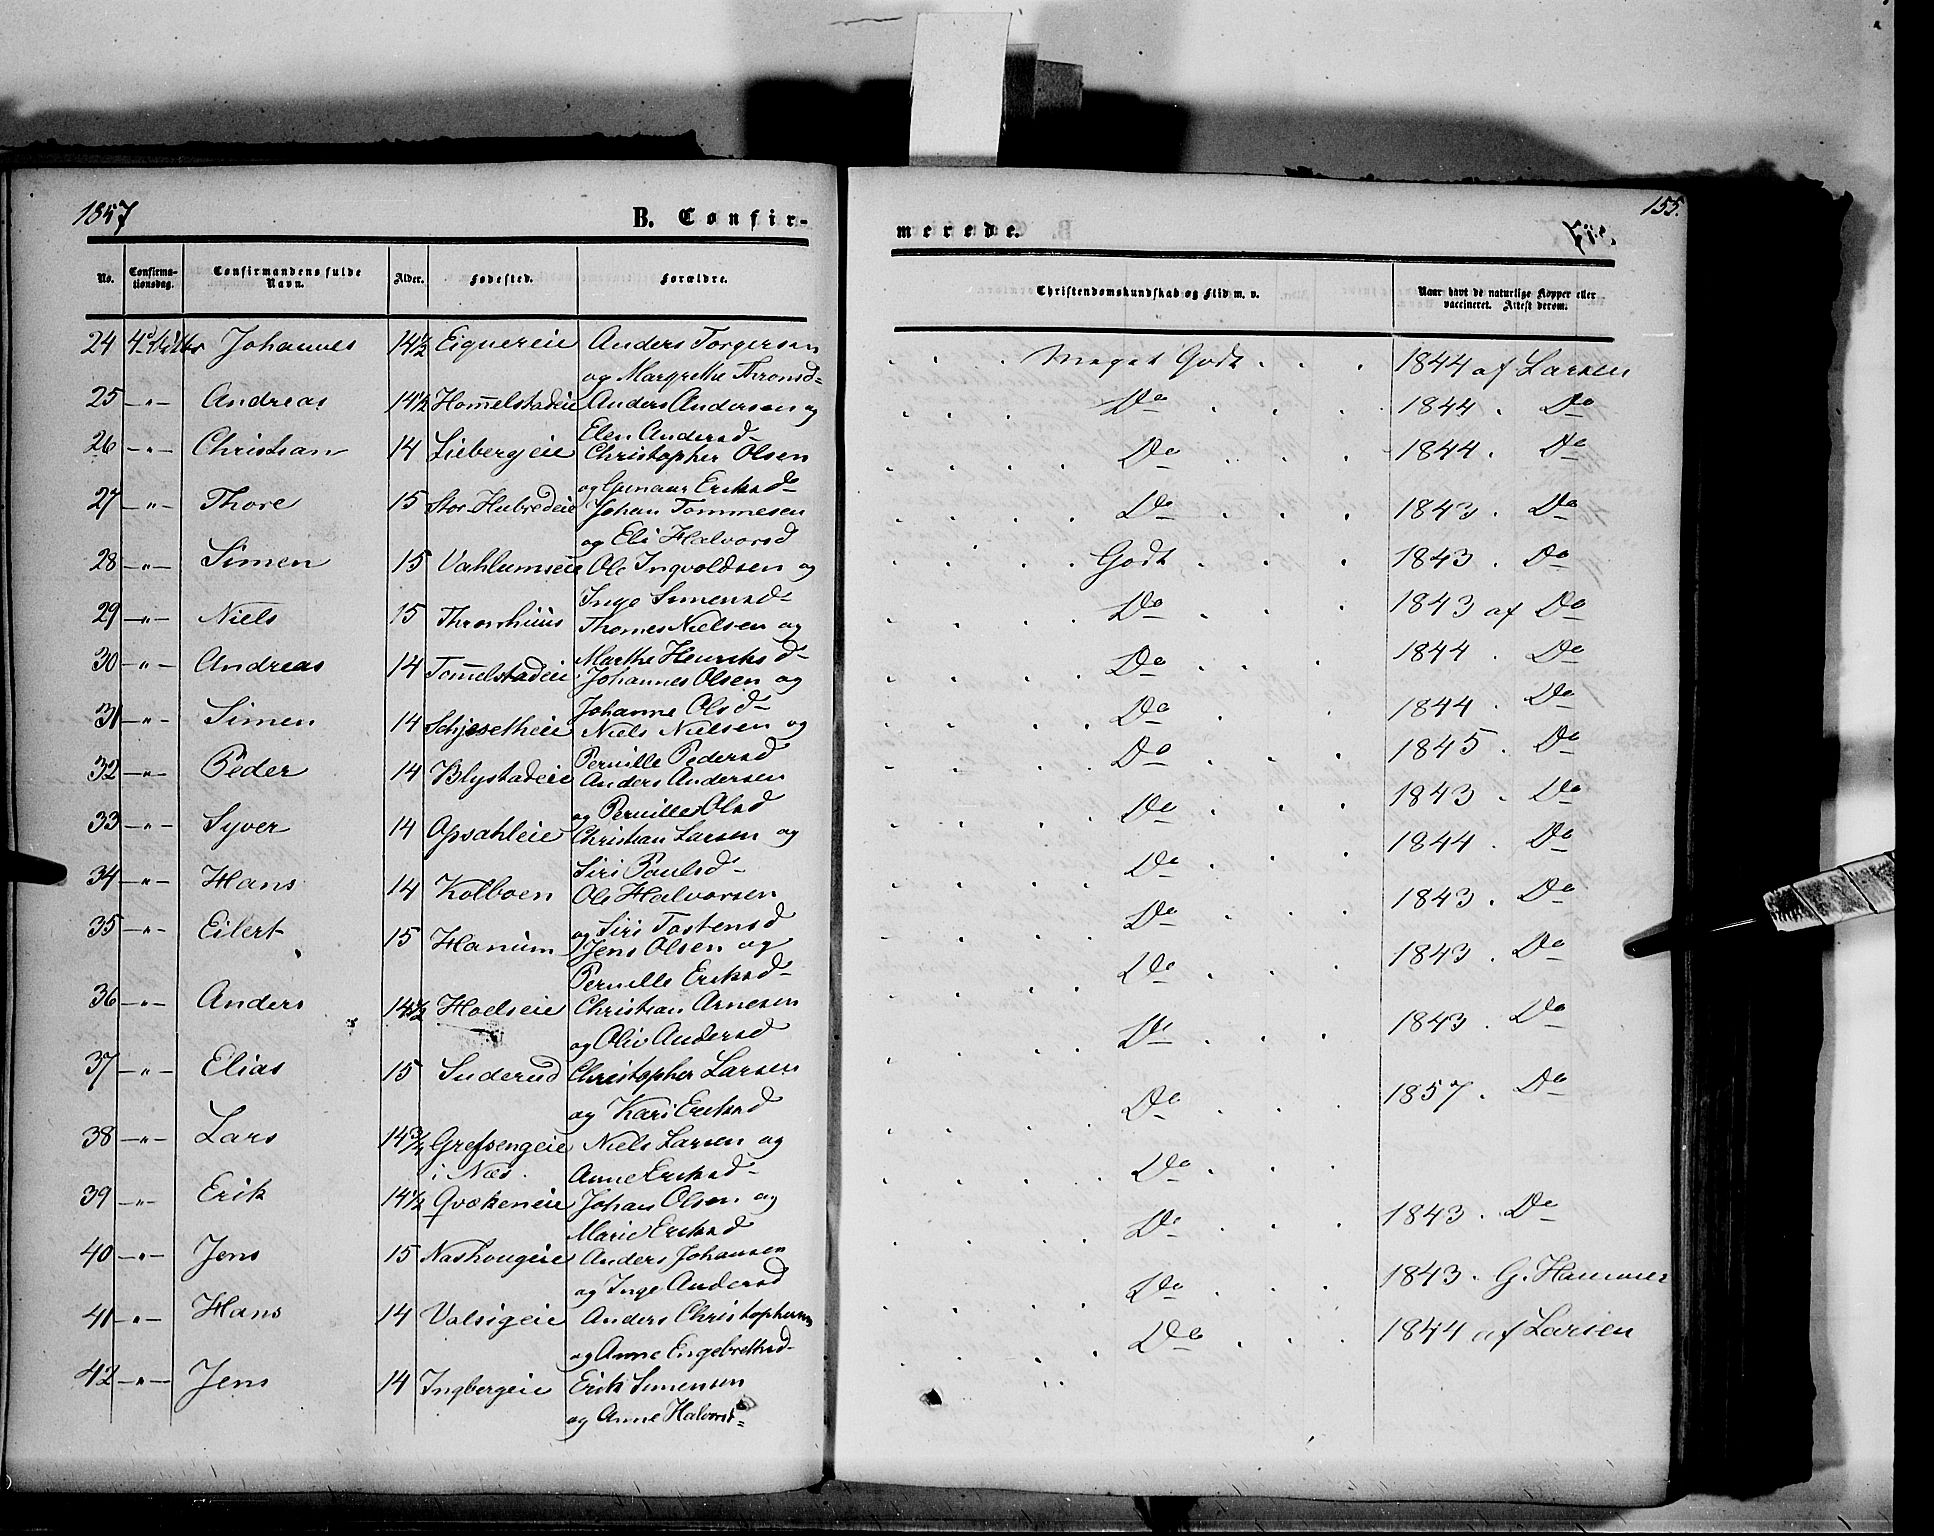 1857
B. Confir-
No.
Confirma-
tionsdag.
Confirmandens fulde
Navn.
Alder.
Fødested.
Forældre.
24 Johannes 14½ Eiquereie Anders Torgersen
og Margrethe Thronsd
25 -"- Andreas 14½ Hom̄elstadeie Anders Andersen og
Elen Andersd
26 -"- Christian 14 Liebergeie Christopher Olsen
og Gunnar Eriksd
27 -"- Thore 15 Stor Hubredeie Johan Tommesen
og Eli Halvorsd
28 -"- Simen 15 Vahlumseie Ole Ingvoldsen og
Inge Simensd
29 -"- Niels 15 Thronhuus Thomes Nielsen og
Marthe Henriksd
30 -"- Andreas 14 Tom̄elstadeie Johannes Olsen og
Johanne Olsd
31 -"- Simen 14 Schjesetheie Niels Nielsen og
Pernille Pedersd
32 -"- Peder 14 Blystadeie Anders Andersen
og Pernille Olsd
33 -"- Syver 14 Opsahleie Christian Larsen og
Siri Paulsd
34 -"- Hans 14 Kolboen Ole Halvorsen
og Siri Tostensd
35 -"- Eilert 15 Hanum Jens Olsen og
Pernille Eriksd
36 -"- Anders 14½ Hoelseie Christian Arnesen
og Oliv Andersd
37 -"- Elias 15 Suderud Christopher Larsen
og Kari Eriksd
38 -"- Lars 14¾ Grefsengeie Niels Larsen og
i Næs. Anne Eriksd
39 -"- Erik 14½ Qvækeneie Johan Olsen og
Marie Eriksd
40 -"- Jens 15 Nashougeie Anders Johansen
og Inge Andersd
41 -"- Hans 14 Valsigeie Anders Christophersen
og Anne Engebrethsd
42 -"- Jens 14 Ingbergeie Erik Simensen
og Anne Halvorsd
155.
merede.
Christendomskundskab og Flid m. v.
Naar havt de naturlige Kopper eller
vaccineret. Attest derom.
Meget Godt 1844 af Larsen
Do 1844 . Do
Do 1844 . Do
Do 1843 . Do
Godt 1843 . Do
Do 1843 af Do
Do 1844 . Do
Do 1844 . Do
Do 1845 . Do
Do 1843 . Do
Do 1844 . Do
Do 1843 . Do
Do 1843 . Do
Do 1843 . Do
Do 1857 . Do
Do
Do 1843 . Do
Do 1843 . G. Hammer
Do 1844 af Larsen